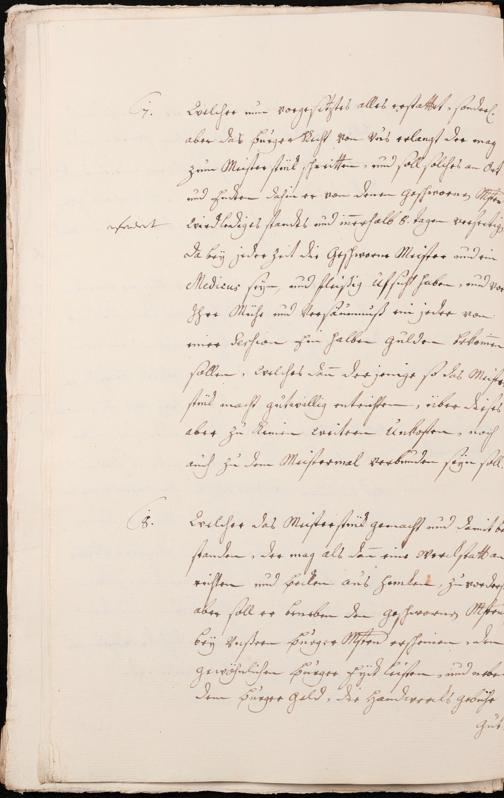 7. Welcher nun vorgesetztes alles erstattet, sonderl.
aber das Burger Recht von Uns erlangt der mag
zum Meisterstük schreitten, und soll solches an Ort
und Enden dahin er von denen Geschwornen Mstrn
lediges standes und innerhalb 8. tagen verfertigen
da bey jederzeit die Geschworne Meister und ein
Medicus seyn, und fleissig Ufsicht haben, und vor
Ihre Mühe und Versäumnuß ein jeder von
einer Persohn Ein halben Gulden bekommen
sollen, Welches dann derjenige so das Meister
stük macht gutwillig entrichten, über dieses
aber zu keinen weitern Unkosten, noch
auch zu dem Meistermal verbunden seyn soll.
8. Welcher das Meisterstük gemacht und damit be
standen, der mag als dann eine Werckstatt an
richten und Beken aus henken, zu vorderst
aber soll er beneben den geschwornen Mstrn
bey Unßern Burger Mstrn erscheinen, den
gewöhnlichen Burger Eydt leisten, und neben
dem Burger Geld, die Handwercks gebühr
Gut